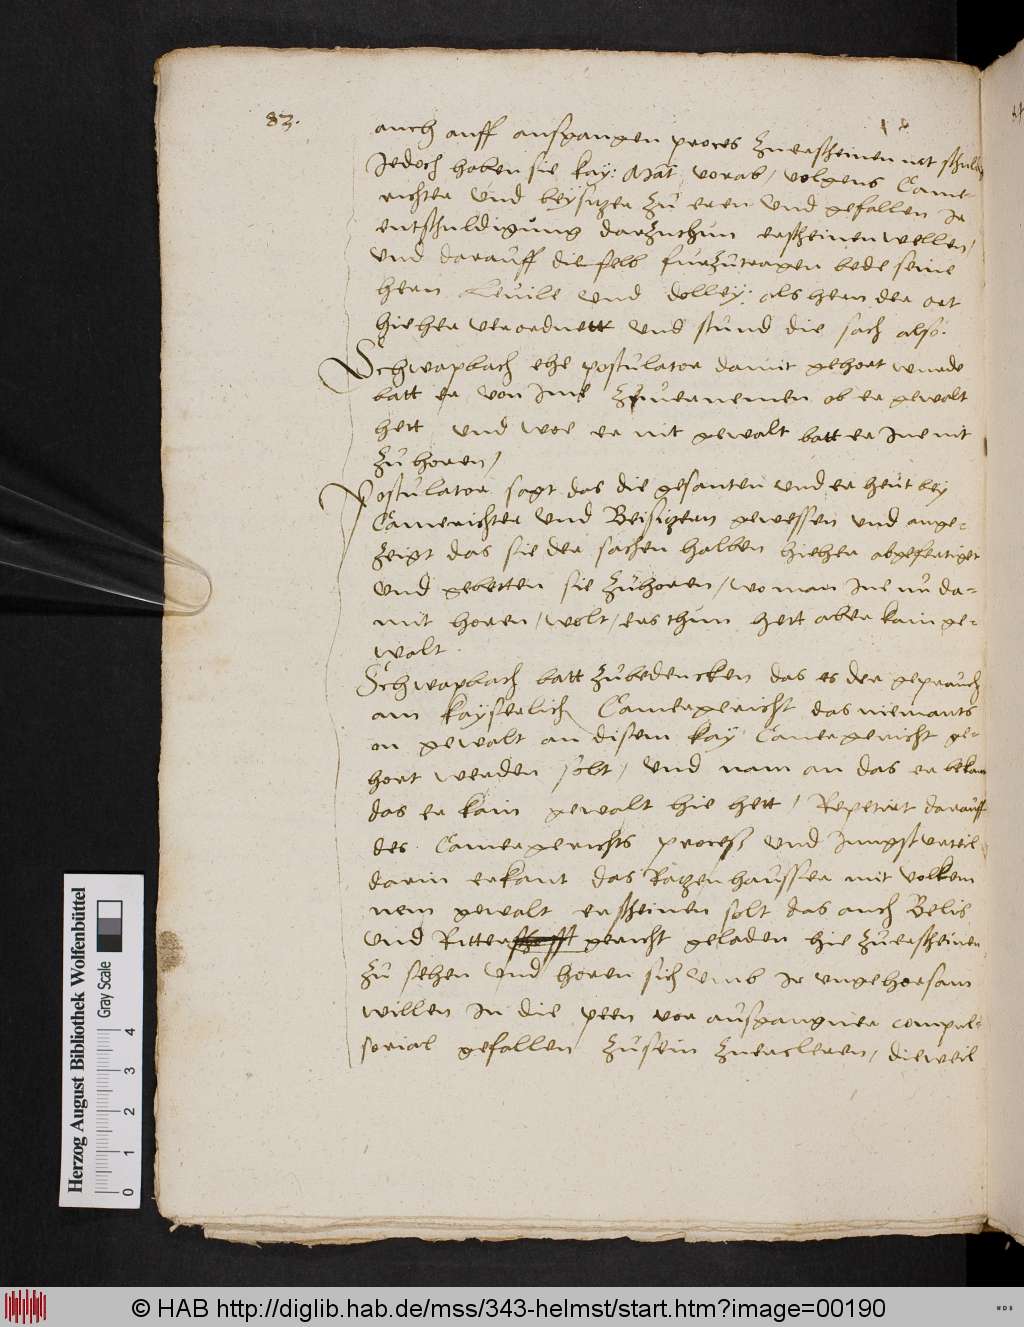 83.
auch auff ausgangen proces zuerscheinen nit schuldig
Jedoch haben sie kay: Mat vorab, volgens Came-
richter und beysitzer zu eren und gefallen Ir
entschuldigung darzuthun erscheinen wellen,
und darauff dieselb furzutragen bede seine
hern und dolley. als hern der ort
hieher verordnett und stund die sach also.
Schwapbach ehe postulator damit gehort wurde
batt er von Ime zuvernemen ob er gewalt
hett und woe er nit gewalt batt er Ine nit
zu horen,
Postulator sagt das die gesanten und er heut bey
Camerichter und Beisitzern gewessen und ange-
zeigt das sie der sachen halben hieher abgefertiget
und gebetten sie zuhoren, wo man Ine nu da-
mit horen, wolt, ers thun hett aber kain ge-
walt.
Schwapbach batt zubedencken das es der geprauch
am kayserlich Camergericht das niemants
on gewalt an disem kay. Camergericht ge-
hort werden solt, und nam an das er bekant
das er kain gewalt hie hett, Repetirt darauff
des Camergerichts proceß und Jungst urteil
darin erkant das Ratzenhausser mit volkem
nem gewalt erscheinen solt das auch Belis
und Ritterschafft gericht geladen hie zuerscheinen
zu sehen und horen sich umb Ir ungehorsam
willen In die peen vor ausgangner compul-
sorial gefallen zusein zuercleren, dieweil
Herzog August Bibliothek Wolfenbüttel
Gray Scale
0 1 2 3 4
© HAB http://diglib.hab.de/mss/343-helmst/start.htm?image=00190
WDB